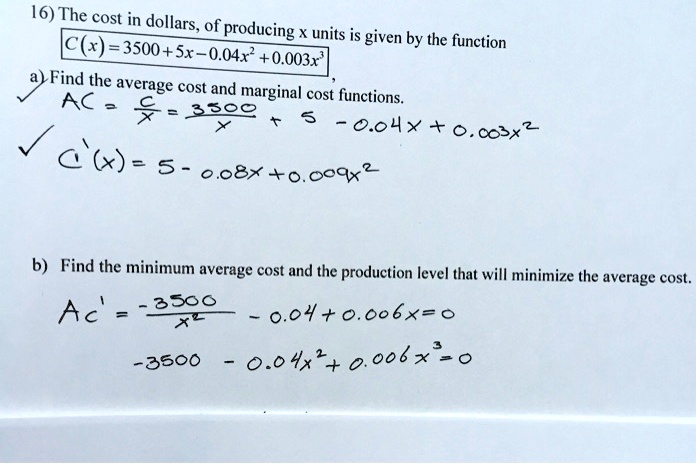 16) The cost in dollars, of producing x units is given by the function
C(x)=3500+5x−0.04x²+0.003x³,
a) Find the average cost and marginal cost functions.
AC = C/x = 3500/x + 5 - 0.04x + 0.003x²
C'(x) = 5 - 0.08x + 0.009x²
b) Find the minimum average cost and the production level that will minimize the average cost.
Ac' = -3500/x² - 0.04 + 0.006x = 0
-3500 - 0.04x² + 0.006x³ = 0